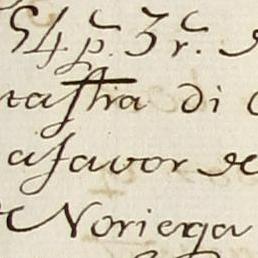 54 p. 3 r.
tastra di
afavor de
Noriega